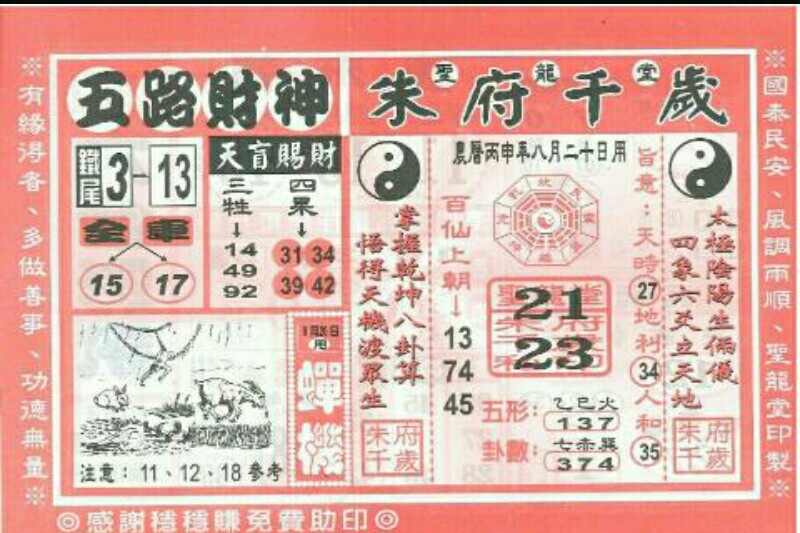 五路財神
朱府千歲
聖龍堂
※國泰民安、風調雨順、聖龍堂印製※
※有緣得者、多做善事、功德無量※
鐵尾
3-13
全車
15 17
天盲賜財
三牲↓
14
49
92
四果↓
31 34
39 42
農曆丙申年八月二十日用
太極陰陽生倆儀
四象六爻立天地
旨意：天時27地利34人和35
百仙上朝↓
13
74
45
掌握乾坤八卦算
悟得天機渡眾生
聖龍堂
朱府
21
23
五形：乙巳火
137
卦數：七赤巽
374
朱府千歲
朱府千歲
禪機
注意：11、12、18參考
◎感謝穩穩賺免費助印◎